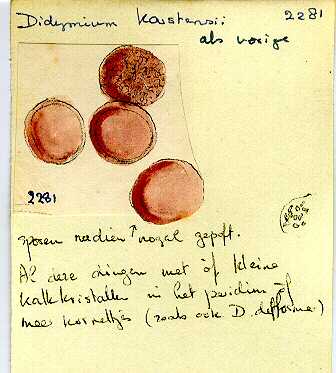 Didymium Karstensii 2281
als vorige
2281
sporen nadien nogal gepokt.
Al deze dingen met óf kleine
kalkkristallen in het peridium óf
meer korreltjes (zoals ook D. difforme.)